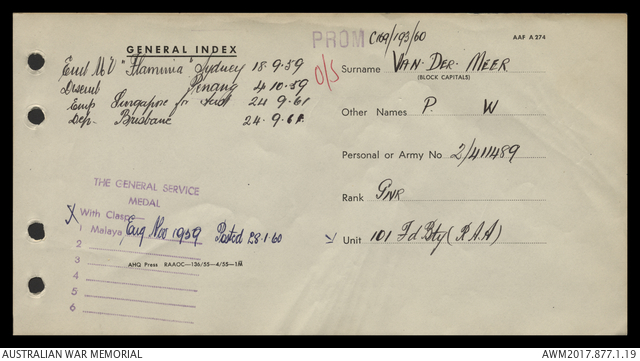 PROM C169/193/60
AAF A 274
GENERAL INDEX
Emb M.V "Flaminia" Sydney 18.9.59
Disemb Penang 4.10.59
Emp Singapore for Aust 24.9.61
Dep. Brisbane 24.9.61
O/S
Surname VAN-DER-MEER
(BLOCK CAPITALS)
Other Names P. W
Personal or Army No 2/411489
Rank GNR
Unit 101 Fd Bty (R.A.A)
THE GENERAL SERVICE
MEDAL
X With Clasps
1 Malaya Eng Nov 1959 Posted 28.1.60
2
3
AHQ Press RAAOC—136/55—4/55—1M
4
5
6
AUSTRALIAN WAR MEMORIAL
AWM2017.877.1.19